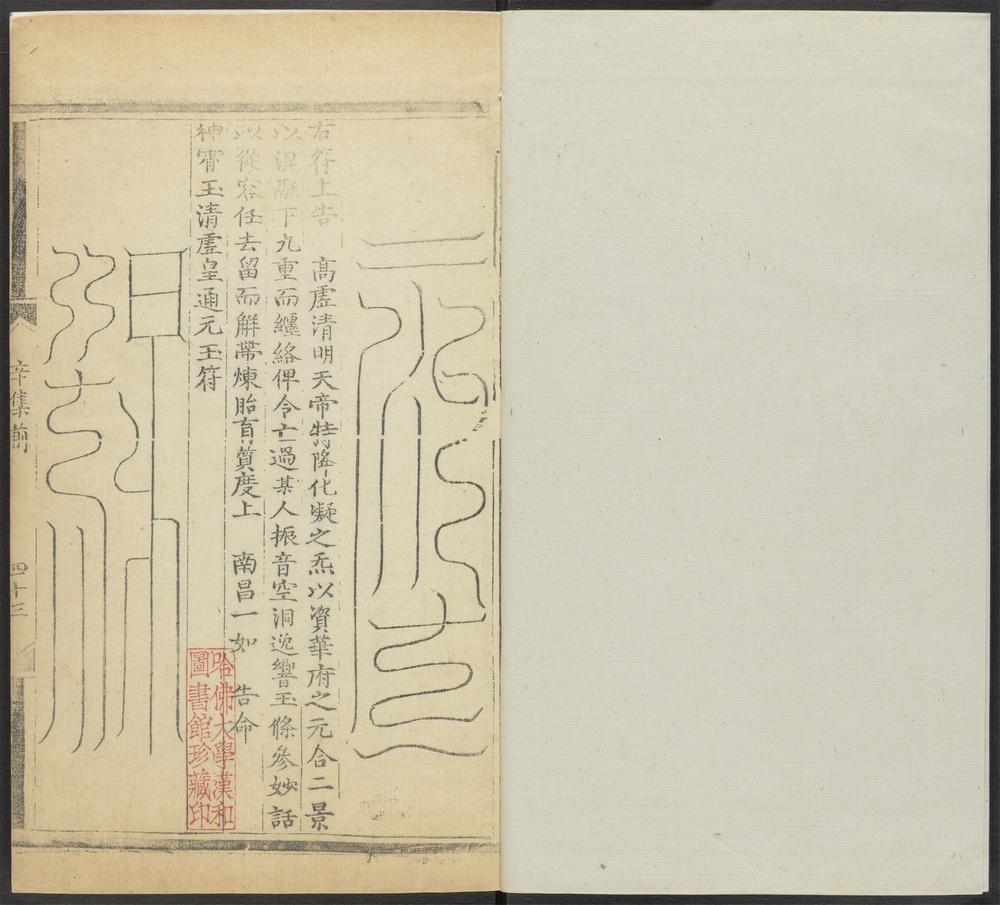 右符上告 高虛清明天帝特降化凝之炁以資華府之元合二景
以混融下九重而纏絡俾令亡過某人振音空洞逸響玉條參妙話
以從容任去留而解帶煉胎育質度上 南昌一如 告命
神霄玉清虛皇通元玉符
辛集前
四十三
哈佛大學漢和
圖書館珍藏印